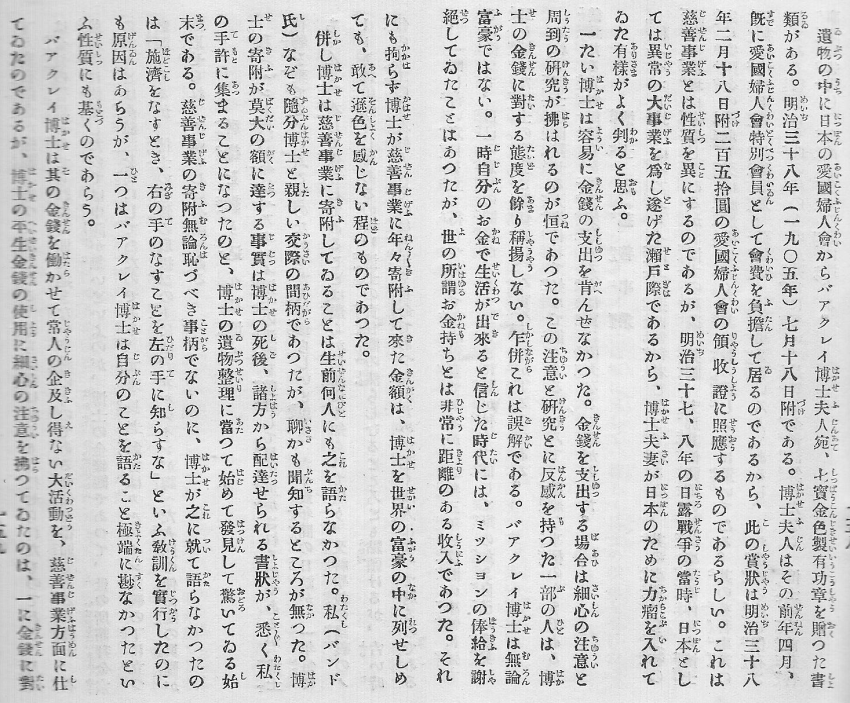 遺物の中に日本の愛國婦人會からバアクレイ博士夫人宛、七寶金色製有功章を贈つた書
類がある。明治三十八年(一九〇五年)七月十八日附である。博士夫人はその前年四月、
旣に愛國婦人會特別會員として會費を負擔して居るのであるから、此の賞狀は明治三十八
年二月十八日附二百五拾圓の愛國婦人會の領收證に照應するものであるらしい。これは
慈善事業とは性質を異にするのであるが、明治三十七、八年の日露戰爭の當時、日本とし
ては異常の大事業を爲し遂げた瀨戶際であるから、博士夫妻が日本のために力瘤を入れて
ゐた有樣がよく判ると思ふ。
一たい博士は容易に金錢の支出を肯んぜなかつた。金錢を支出する場合は細心の注意と
周到の硏究が拂はれるのが恒であつた。この注意と硏究とに反感を持つた一部の人は、博
士の金錢に對する態度を餘り稱揚しない。乍併これは誤解である。バアクレイ博士は無論
富豪ではない。一時自分のお金で生活が出來ると信じた時代には、ミッションの俸給を謝
絕してゐたことはあつたが、世の所謂お金持ちとは非常に距離のある收入であつた。それ
にも拘らず博士が慈善事業に年々寄附して來た金額は、博士を世界の富豪の中に列せしめ
ても、敢て遜色を感じない程のものであつた。
併し博士は慈善事業に寄附してゐることは生前何人にも之を語らなかつた。私(バンド
氏)なども隨分博士と親しい交際の間柄であつたが、聊かも聞知するところが無つた。博
士の寄附が莫大の額に達する事實は博士の死後、諸方から配達せられる書狀が、悉く私
の手許に集まることになつたのと、博士の遺物整理に當つて始めて發見して驚いてゐる始
末である。慈善事業の寄附無論恥づべき事柄でないのに、博士が之に就て語らなかつたの
は「施濟をなすとき、右の手のなすことを左の手に知らすな」といふ敎訓を實行したのに
も原因はあらうが、一つはバアクレイ博士は自分のことを語ること極端に尠なかつたとい
ふ性質にも基くのであらう。
バアクレイ博士は其の金錢を働かせて常人の企及し得ない大活動を、慈善事業方面に仕
てゐたのであるが、博士の平生金錢の使用に細心の注意を拂つてゐたのは、一に金錢に對